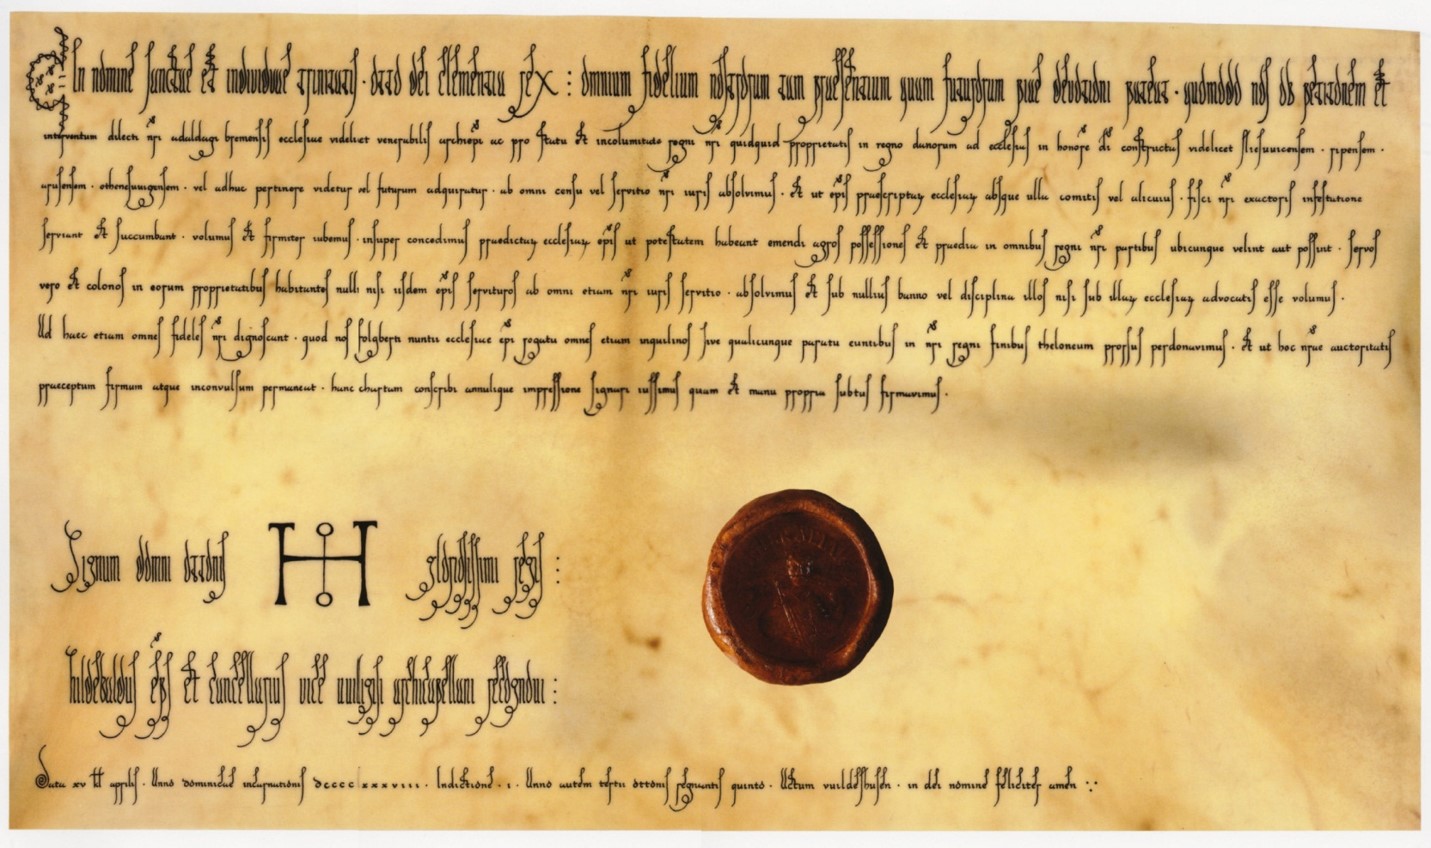 In nomine sanctae et individuae trinitatis · otto dei clementia rex : omnium fidelium nostrorum tam praesentium quam futurorum piae devotioni pateat · quomodo nos ob petitionem et
interventum dilecti nri adaldagi bremensis ecclesiae videlicet venerabilis archiepi ac pro statu et incolumitate regni nri quidquid proprietatis in regno danorum ad ecclesias in honore di constructas videlicet sliesuuicensem · ripensem ·
arusensem · othenesuuigensem · vel adhuc pertinere videtur vel futurum adquiratur · ab omni censu vel servitio nri iuris absolvimus · et ut epis praescriptaȝ ecclesiaȝ absque ulla comitis vel alicuius · fisci nri exactoris infestatione
serviant et succumbant · volumus et firmiter iubemus · insuper concedimus praedictaȝ ecclesiaȝ epis ut potestatem habeant emendi agros possessiones et praedia in omnibus regni nri partibus ubicunque velint aut possint · servos
vero et colonos in eorum proprietatibus habitantes nulli nisi iisdem epis servituros ab omni etiam nri iuris servitio · absolvimus et sub nullius banno vel disciplina illos nisi sub illaȝ ecclesiaȝ advocatis esse volumus ·
Ad haec etiam omnes fideles nri dignoscant · quod nos folgberti nuntii ecclesiae epi rogatu omnes etiam inquilinos sive qualicunque paratu euntibus in nri regni finibus theloneum prorsus perdonavimus · et ut hoc nrae auctoritatis
praeceptum firmum atque inconvulsum permaneat · hanc chartam conscribi annulique impressione signari iussimus quam et manu propria subtus firmavimus ·
Signum domni ottonis gloriosissimi regis :
hildebaldus eps et cancellarius vice uuiligisi archicapellani recognovi :
Data xv kl aprilis · Anno dominicae incarnationis dcccc lxxxviii · Indictione · i · Anno autem tertii ottonis regnantis quinto · Actum vuildeshusen · in dei nomine feliciter amen